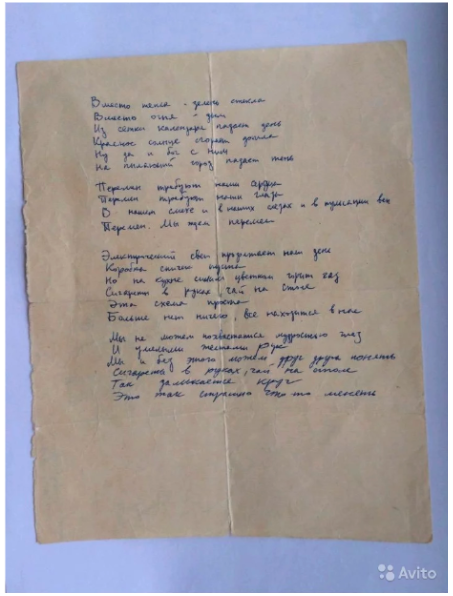 Вместо тепла - зелень стекла
Вместо огня - дым
Из сетки календаря падает день
Красное солнце сгорает дотла
Ну да и бог с ним
На пылающий город падает тень
Перемен требуют наши сердца
Перемен требуют наши глаза
В нашем смехе и в наших слезах и в пульсации вен
Перемен. Мы ждем перемен
Электрический свет продолжает наш день
Коробка спичек пуста
Но на кухне синим цветком горит газ
Сигареты в руках, чай на столе
Эта схема проста
Больше нет ничего, все находится в нас
Мы не можем похвастаться мудростью глаз
И умелыми жестами рук
Мы и без этого можем друг друга понять
Сигареты в руках, чай на столе
Так замыкается круг
Это так страшно что-то менять
Avito